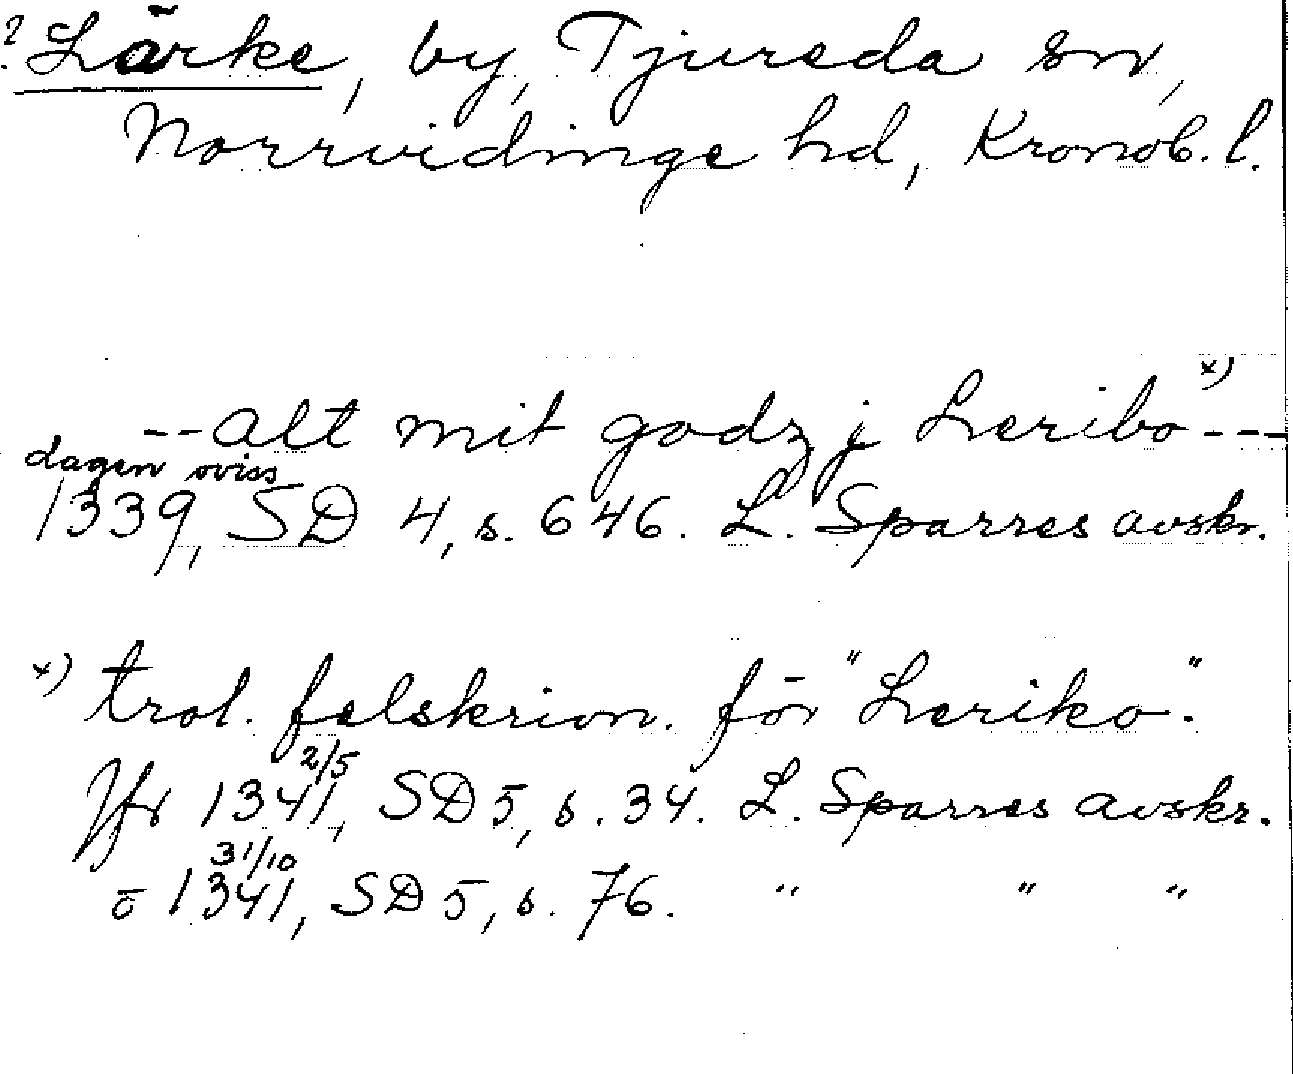 ? Lärke, by, Tjureda sn,
Norrvidinge hd, Kronob. l.
--alt mit godz j Leribo x) ---
dagen oviss
1339, SD 4, s. 646. L. Sparres avskr.
x) trol. felskrivn. för "Leriko".
Jfr 1341 2/5, SD 5, s. 34. L. Sparres avskr.
o 1341 31/10, SD 5, s. 76. " " "